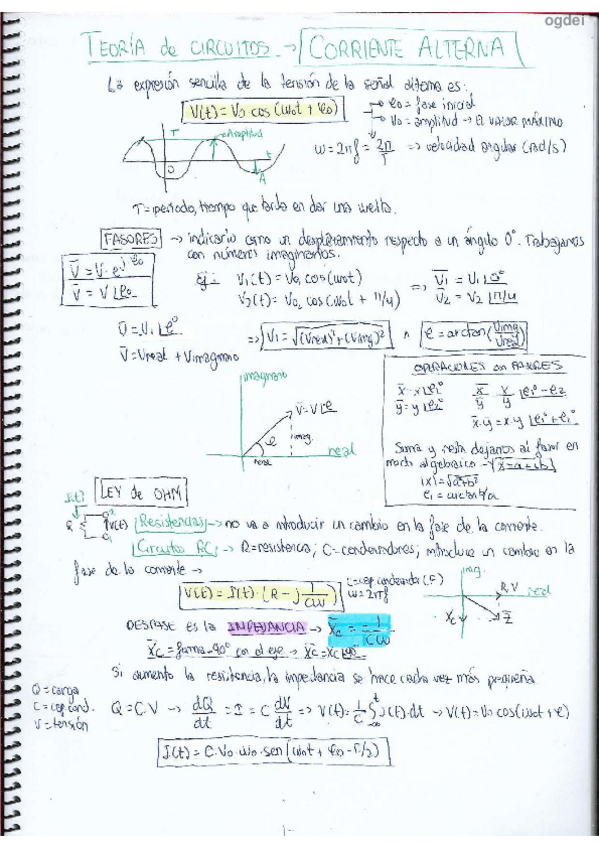 ogdei
TEORÍA de CIRCUITOS → CORRIENTE ALTERNA
La expresión sencilla de la tensión de la señal alterna es:
V(t) = V₀ cos(ω₀t + φ₀)
φ₀ = fase inicial
V₀ = amplitud → El valor máximo
ω = 2πf = 2π/T => velocidad angular (rad/s)
T
Amplitud
t
0
A
T = periodo, tiempo que tarda en dar una vuelta.
FASORES → indicarlo como un desplazamiento respecto a un ángulo 0°. Trabajamos
con números imaginarios.
V̅ = V · e^(jφ₀)
V̅ = V∠φ₀
Ej:
V₁(t) = V₀₁ cos(ω₀t)
V₂(t) = V₀₂ cos(ω₀t + π/4)
=>
V̅₁ = V₁∠0°
V̅₂ = V₂∠π/4
=> V₁ = √((Vreal)²+(Vimg)²) ∧ φ = arctan(Vimg/Vreal)
V̅ = Vreal + Vimaginario
imaginario
V̅ = V∠φ
φ
imag.
real
real
OPERACIONES con FASORES
Suma y resta dejamos al fasor en
modo algebraico → x̅ = a + jb
|x| = √a²+b²
φ₁ = arctan b/a
LEY de OHM
I(t)
R
V(t)
Resistencias → no va a introducir un cambio en la fase de la corriente.
Circuitos RC → R = resistencia; C = condensadores; introduce un cambio en la
fase de la corriente →
V(t) = I(t) · (R - j 1/Cω)
C = cap condensador (F)
ω = 2πf
img.
R, V
real
X̅c
Z̅
DESFASE es la IMPEDANCIA → X̅c = -1/Cω
X̅c = forma -90° con el eje → X̅c = Xc∠-90°
Si aumento la resistencia, la impedancia se hace cada vez más pequeña
Q = carga
C = cap cond.
V = tensión
Q = C·V → dQ/dt = I = C dV/dt => V(t) = 1/C ∫ I(t)·dt → V(t) = V₀ cos(ω₀t + φ)
I(t) = C·V₀·ω₀·sen(ω₀t + φ₀ - π/2)